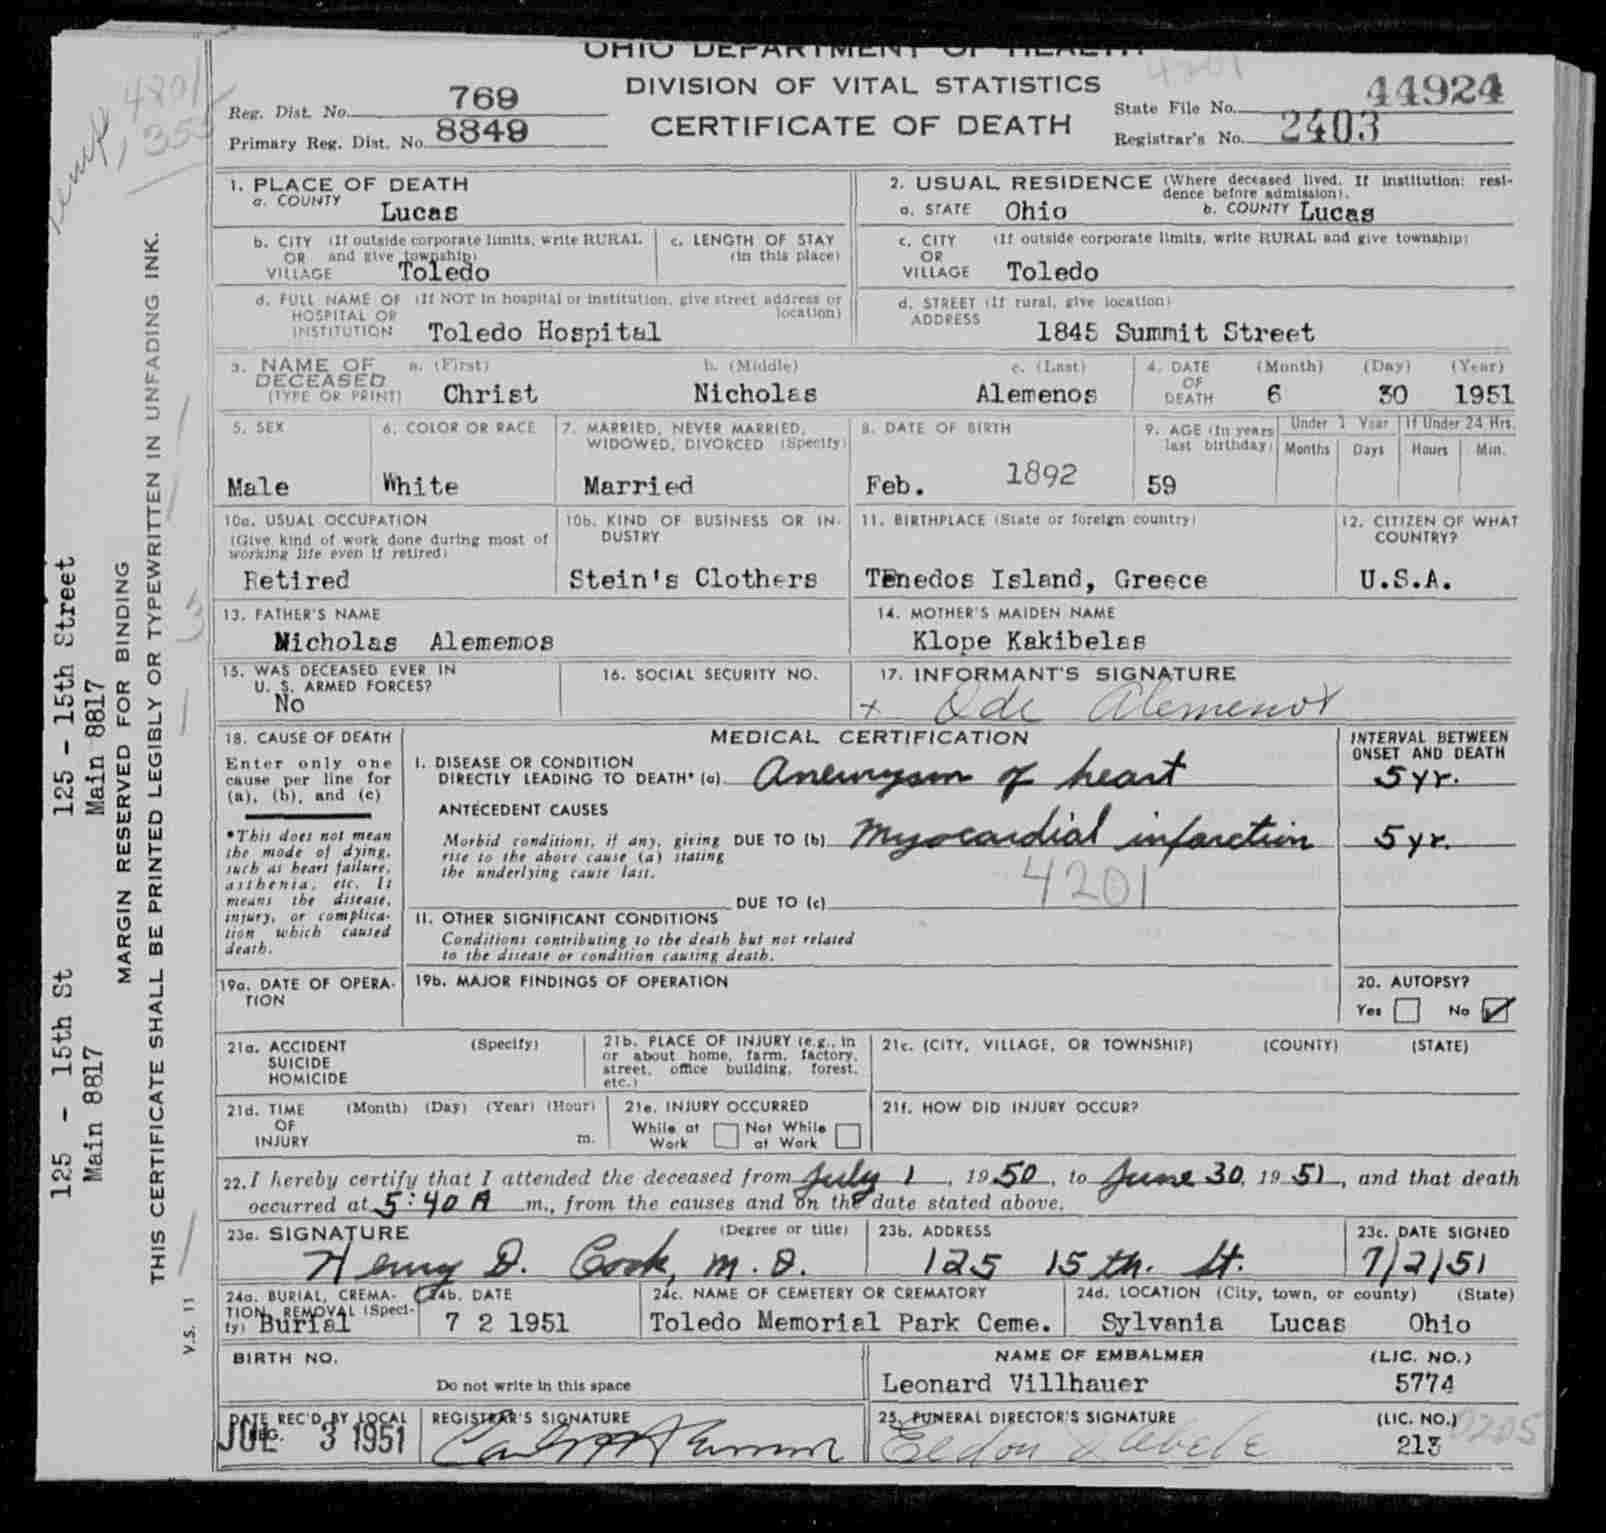 OHIO DEPARTMENT OF HEALTH
DIVISION OF VITAL STATISTICS
CERTIFICATE OF DEATH
4201
Reg. Dist. No. 769
Primary Reg. Dist. No. 8849
State File No. 44924
Registrar's No. 2403
4201
355
1. PLACE OF DEATH
a. COUNTY Lucas
b. CITY (If outside corporate limits, write RURAL
OR and give township)
VILLAGE Toledo
c. LENGTH OF STAY
(in this place)
d. FULL NAME OF (If NOT in hospital or institution, give street address or
HOSPITAL OR location)
INSTITUTION Toledo Hospital
2. USUAL RESIDENCE (Where deceased lived. If institution: resi-
dence before admission).
a. STATE Ohio b. COUNTY Lucas
c. CITY (If outside corporate limits, write RURAL and give township)
OR
VILLAGE Toledo
d. STREET (If rural, give location)
ADDRESS 1845 Summit Street
3. NAME OF DECEASED (TYPE OR PRINT)
a. (First) b. (Middle) c. (Last)
Christ Nicholas Alemenos
4. DATE OF DEATH (Month) (Day) (Year)
6 30 1951
5. SEX
Male
6. COLOR OR RACE
White
7. MARRIED, NEVER MARRIED,
WIDOWED, DIVORCED (Specify)
Married
8. DATE OF BIRTH
Feb. 1892
9. AGE (In years
last birthday)
59
Under 1 Year
Months Days
If Under 24 Hrs.
Hours Min.
10a. USUAL OCCUPATION
(Give kind of work done during most of
working life even if retired)
Retired
10b. KIND OF BUSINESS OR IN-
DUSTRY
Stein's Clothers
11. BIRTHPLACE (State or foreign country)
Tenedos Island, Greece
12. CITIZEN OF WHAT
COUNTRY?
U.S.A.
13. FATHER'S NAME
Nicholas Alememos
14. MOTHER'S MAIDEN NAME
Klope Kakibelas
15. WAS DECEASED EVER IN
U. S. ARMED FORCES?
No
16. SOCIAL SECURITY NO.
17. INFORMANT'S SIGNATURE
x Ode Alemenos
18. CAUSE OF DEATH
Enter only one
cause per line for
(a), (b), and (c)
*This does not mean
the mode of dying,
such as heart failure,
asthenia, etc. It
means the disease,
injury, or complica-
tion which caused
death.
MEDICAL CERTIFICATION
I. DISEASE OR CONDITION
DIRECTLY LEADING TO DEATH* (a) Aneurysm of heart
ANTECEDENT CAUSES
Morbid conditions, if any, giving
rise to the above cause (a) stating
the underlying cause last.
DUE TO (b) Myocardial infarction
4201
DUE TO (c)
II. OTHER SIGNIFICANT CONDITIONS
Conditions contributing to the death but not related
to the disease or condition causing death.
INTERVAL BETWEEN
ONSET AND DEATH
5 yr.
5 yr.
19a. DATE OF OPERA-
TION
19b. MAJOR FINDINGS OF OPERATION
20. AUTOPSY?
Yes No
21a. ACCIDENT (Specify)
SUICIDE
HOMICIDE
21b. PLACE OF INJURY (e.g., in
or about home, farm, factory,
street, office building, forest,
etc.)
21c. (CITY, VILLAGE, OR TOWNSHIP) (COUNTY) (STATE)
21d. TIME (Month) (Day) (Year) (Hour)
OF
INJURY m.
21e. INJURY OCCURRED
While at Work Not While at Work
21f. HOW DID INJURY OCCUR?
22. I hereby certify that I attended the deceased from July 1, 1950, to June 30, 1951, and that death
occurred at 5:40 A m., from the causes and on the date stated above.
23a. SIGNATURE (Degree or title)
Henry D. Cook, M.D.
23b. ADDRESS
125 15th. St.
23c. DATE SIGNED
7/2/51
24a. BURIAL, CREMA-
TION, REMOVAL (Speci-
fy) Burial
24b. DATE
7 2 1951
24c. NAME OF CEMETERY OR CREMATORY
Toledo Memorial Park Ceme.
24d. LOCATION (City, town, or county) (State)
Sylvania Lucas Ohio
BIRTH NO.
Do not write in this space
NAME OF EMBALMER (LIC. NO.)
Leonard Villhauer 5774
DATE REC'D BY LOCAL
REG.
JUL 3 1951
REGISTRAR'S SIGNATURE
25. FUNERAL DIRECTOR'S SIGNATURE (LIC. NO.)
Eldon 213
0205
125 - 15th Street
Main 8817
125 - 15th St
Main 8817
MARGIN RESERVED FOR BINDING
THIS CERTIFICATE SHALL BE PRINTED LEGIBLY OR TYPEWRITTEN IN UNFADING INK.
V.S. 11